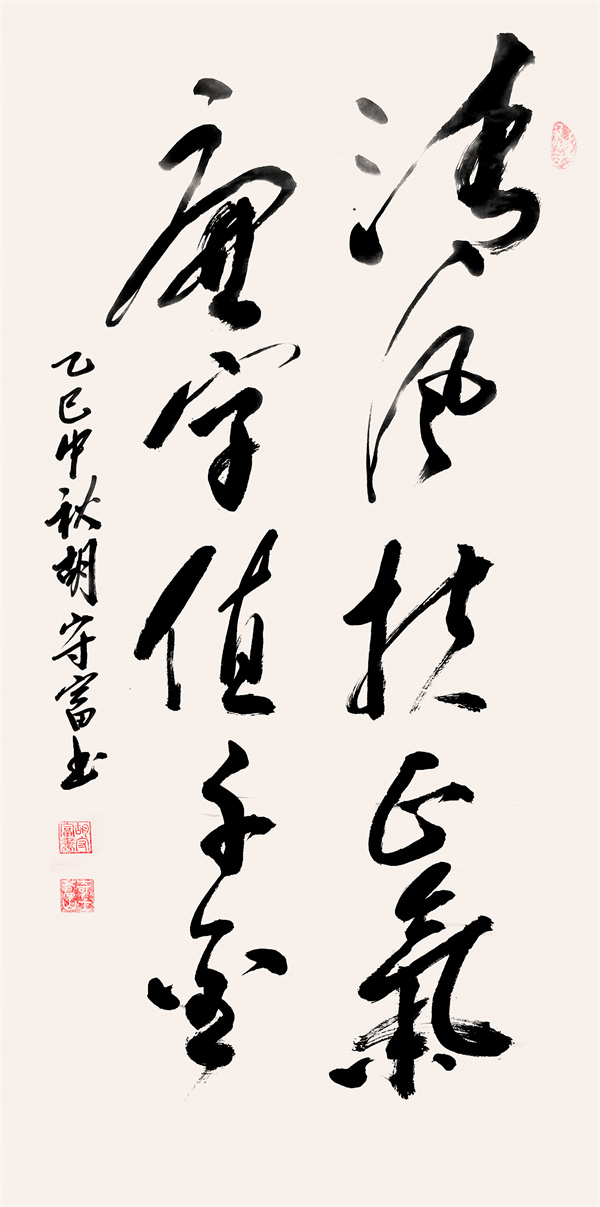 清风扶正氣
廉字值千金
乙巳中秋胡守富书